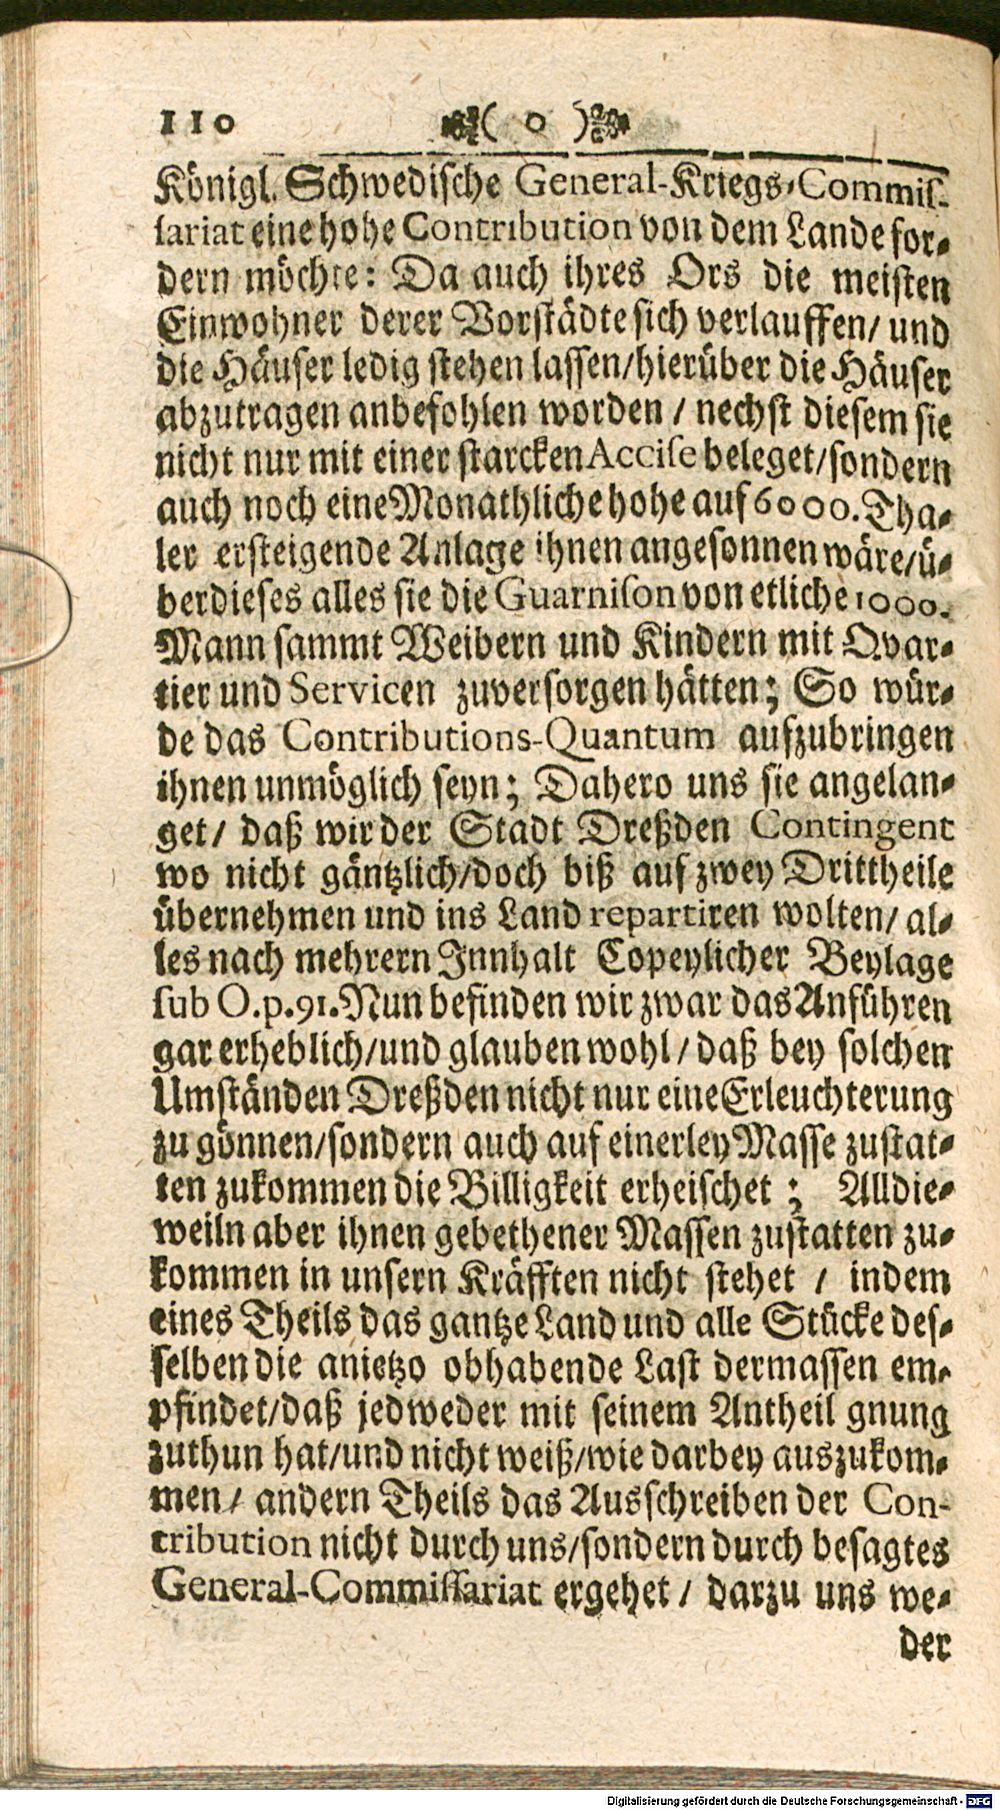 110 ( o )
Königl. Schwedische General-Kriegs-Commis-
sariat eine hohe Contribution von dem Lande for-
dern möchte: Da auch ihres Ors die meisten
Einwohner derer Vorstädte sich verlauffen/ und
die Häuser ledig stehen lassen/hierüber die Häuser
abzutragen anbefohlen worden / nechst diesem sie
nicht nur mit einer starcken Accise beleget/sondern
auch noch eine Monathliche hohe auf 6000. Tha-
ler ersteigende Anlage ihnen angesonnen wäre/ü-
berdieses alles sie die Guarnison von etliche 1000.
Mann sammt Weibern und Kindern mit Qvar-
tier und Servicen zuversorgen hätten; So wür-
de das Contributions-Quantum aufzubringen
ihnen unmöglich seyn; Dahero uns sie angelan-
get/ daß wir der Stadt Dreßden Contingent
wo nicht gäntzlich/doch biß auf zwey Drittheile
übernehmen und ins Land repartiren wolten/ al-
les nach mehrern Innhalt Copeylicher Beylage
sub O.p.91. Nun befinden wir zwar das Anführen
gar erheblich/und glauben wohl / daß bey solchen
Umständen Dreßden nicht nur eine Erleuchterung
zu gönnen/sondern auch auf einerley Masse zustat-
ten zukommen die Billigkeit erheischet ; Alldie-
weiln aber ihnen gebethener Massen zustatten zu-
kommen in unsern Kräfften nicht stehet / indem
eines Theils das gantze Land und alle Stücke des-
selben die anietzo obhabende Last dermassen em-
pfindet/daß jedweder mit seinem Antheil gnung
zuthun hat/und nicht weiß/wie darbey auszukom-
men / andern Theils das Ausschreiben der Con-
tribution nicht durch uns/sondern durch besagtes
General-Commissariat ergehet / darzu uns we-
der
Digitalisierung gefördert durch die Deutsche Forschungsgemeinschaft - DFG